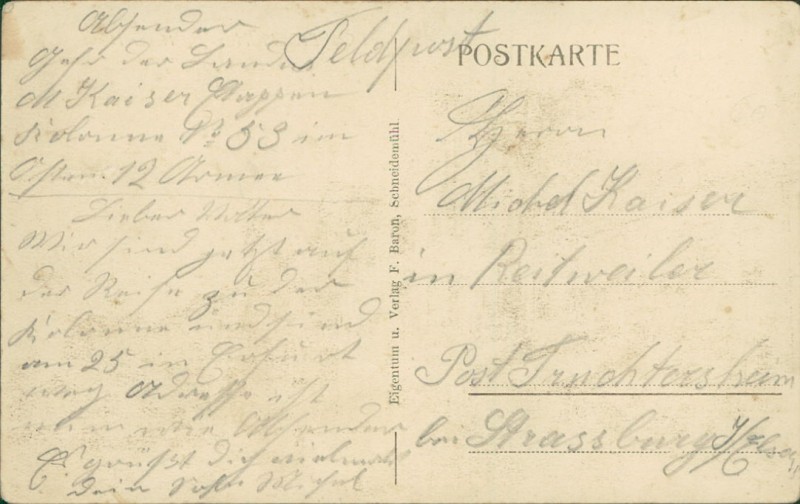 Absender
Gefr der Landw
M Kaiser Etappen
Kolonne No 53 im
Osten 12 Armee
Lieber Vatter
Wir sind jetzt auf
der Reise zu der
Kolonne und sind
am 25 in Erfurt
weg Adresse ist
oben wie Absender
Es grüßt dich vielmals
dein Sohn Michel
Feldpost
POSTKARTE
Eigentum u. Verlag F. Baron, Schneidemühl
Herrn
Michel Kaiser
in Reitweiler
Post Truchtersheim
bei Strassburg i/Elsaß